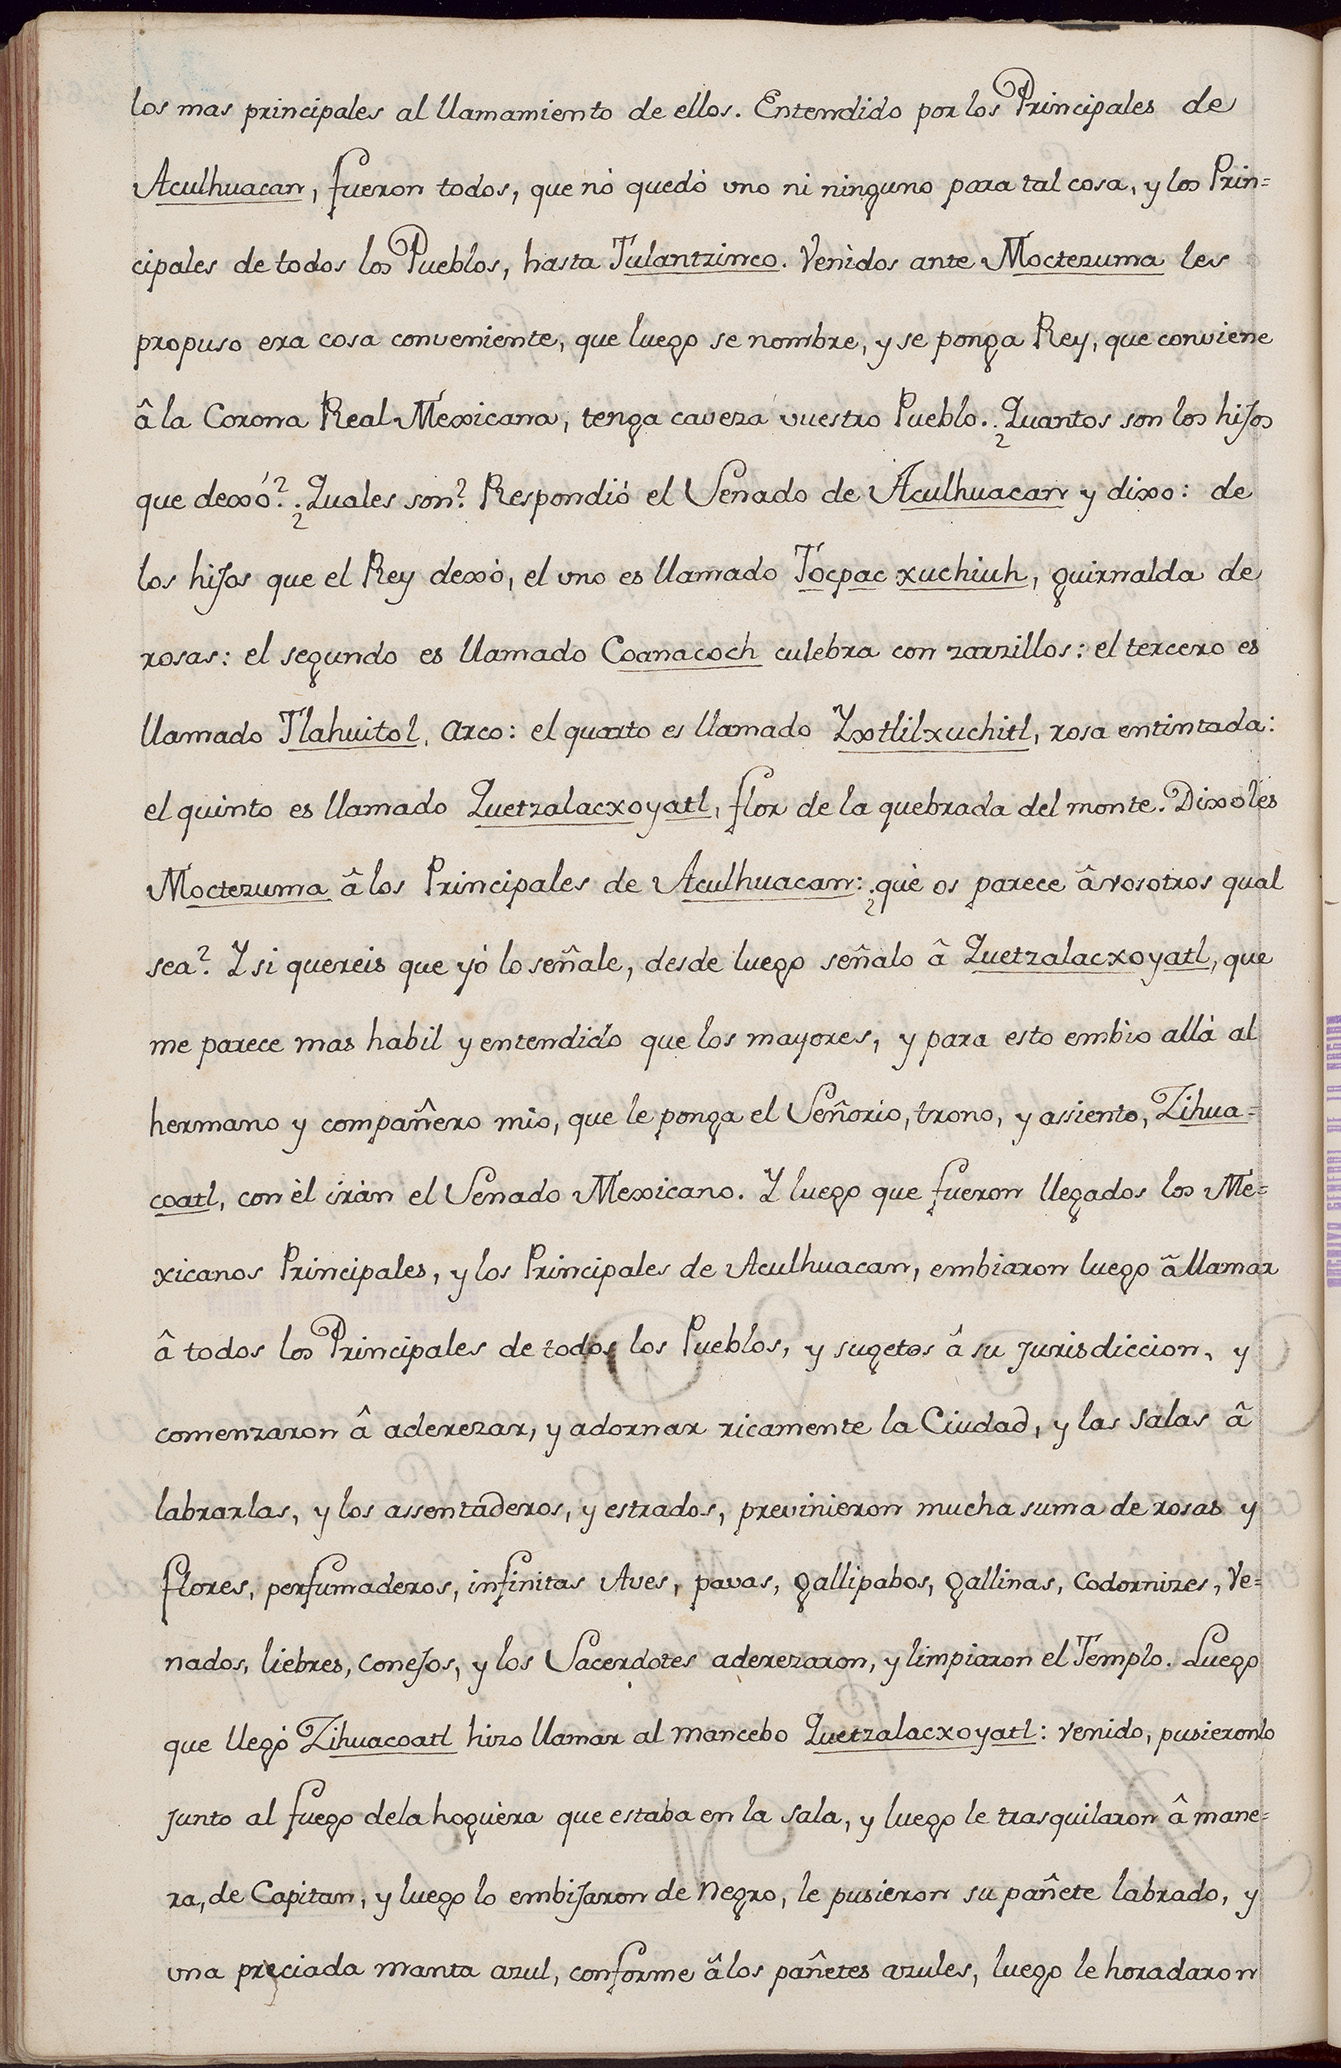 los mas principales al llamamiento de ellos. Entendido por los Principales de
Aculhuacan, fueron todos, que nó quedó uno ni ninguno para tal cosa, y los Prin=
cipales de todos los Pueblos, hasta Tulantzinco. Venidos ante Moctezuma les
propuso era cosa conveniente, que luego se nombre, y se ponga Rey, que conviene
â la Corona Real Mexicana, tenga caveza vuestro Pueblo. ¿Quantos son los hijos
que dexó? ¿Quales son? Respondió el Senado de Aculhuacan y dixo: de
los hijos que el Rey dexó, el uno es llamado Tocpac xuchiuh, guirnalda de
rosas: el segundo es llamado Coanacoch culebra con zarzillos: el tercero es
llamado Tlahuitol, arco: el quarto es llamado Yxtlilxuchitl, rosa entintada:
el quinto es llamado Quetzalacxoyatl, flor de la quebrada del monte. Dixoles
Moctezuma â los Principales de Aculhuacan: ¿què os parece â vosotros qual
sea? Y si quereis que yó lo señale, desde luego señalo â Quetzalacxoyatl, que
me parece mas habil y entendido que los mayores, y para esto embio allà al
hermano y compañero mio, que le ponga el Señorio, trono, y assiento, Zihua=
coatl, con èl iràn el Senado Mexicano. Y luego que fueron llegados los Me=
xicanos Principales, y los Principales de Aculhuacan, embiaron luego â llamar
â todos los Principales de todos los Pueblos, y sugetos â su jurisdiccion, y
comenzaron â aderezar, y adornar ricamente la Ciudad, y las salas â
labrarlas, y los assentaderos, y estrados, previnieron mucha suma de rosas y
flores, perfumaderos, infinitas Aves, pavas, gallipabos, gallinas, Codornizes, Ve=
nados, liebres, conejos, y los Sacerdotes aderezaron, y limpiaron el Templo. Luego
que llegó Zihuacoatl hizo llamar al mancebo Quetzalacxoyatl: venido, pusieronlo
junto al fuego dela hoguera que estaba en la sala, y luego le trasquilaron â mane=
ra, de Capitan, y luego lo embijaron de negro, le pusieron su pañete labrado, y
una preciada manta azul, conforme â los pañetes azules, luego le horadaron
ARCHIVO GENERAL DE LA NACION